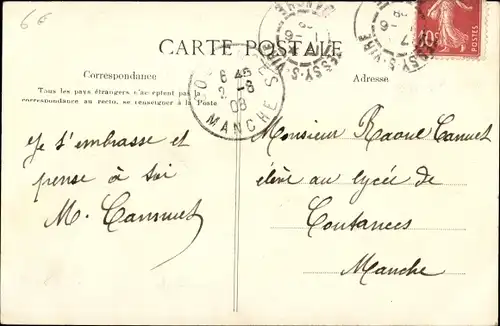 6€
CARTE POSTALE
Correspondance
Tous les pays étrangers n'acceptent pas la
correspondance au recto, se renseigner à la Poste
Je t'embrasse et
pense à toi
M. Cannuet
Adresse
Monsieur Raoul Cannuet
élève au lycée de
Coutances
Manche
6 45
2 -8
08
MANCHE
SSY-S-VIRE
10c
POSTES